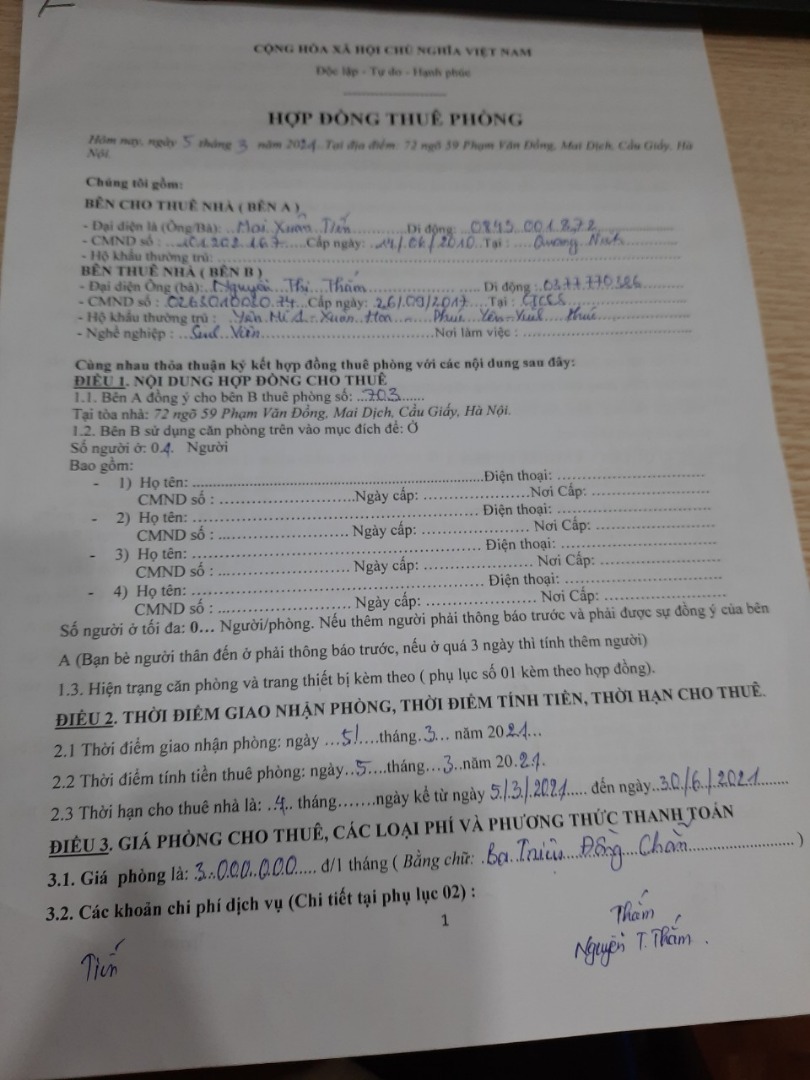 CỘNG HÒA XÃ HỘI CHỦ NGHĨA VIỆT NAM
Độc lập - Tự do - Hạnh phúc
HỢP ĐỒNG THUÊ PHÒNG
Hôm nay, ngày 5 tháng 3 năm 2021. Tại địa điểm: 72 ngõ 59 Phạm Văn Đồng, Mai Dịch, Cầu Giấy, Hà
Nội.
Chúng tôi gồm:
BÊN CHO THUÊ NHÀ ( BÊN A )
- Đại diện là (Ông/Bà): Mai Xuân Tiến Di động: 0845.001.872
- CMND số : 101.202.167 Cấp ngày: 14/06/2010 Tại : Quảng Ninh
- Hộ khẩu thường trú:
BÊN THUÊ NHÀ ( BÊN B )
- Đại diện Ông (bà): Nguyễn Thị Thắm Di động : 0377.770386
- CMND số : Cấp ngày: 26/09/2017 Tại :
- Hộ khẩu thường trú : Xuân Hòa - Phúc Yên - Vĩnh Phúc
- Nghề nghiệp : Sinh Viên Nơi làm việc :
Cùng nhau thỏa thuận ký kết hợp đồng thuê phòng với các nội dung sau đây:
ĐIỀU 1. NỘI DUNG HỢP ĐỒNG CHO THUÊ
1.1. Bên A đồng ý cho bên B thuê phòng số: 703
Tại tòa nhà: 72 ngõ 59 Phạm Văn Đồng, Mai Dịch, Cầu Giấy, Hà Nội.
1.2. Bên B sử dụng căn phòng trên vào mục đích để: Ở
Số người ở: 01. Người
Bao gồm:
- 1) Họ tên: Điện thoại:
CMND số : Ngày cấp: Nơi Cấp:
- 2) Họ tên: Điện thoại:
CMND số : Ngày cấp: Nơi Cấp:
- 3) Họ tên: Điện thoại:
CMND số : Ngày cấp: Nơi Cấp:
- 4) Họ tên: Điện thoại:
CMND số : Ngày cấp: Nơi Cấp:
Số người ở tối đa: 0... Người/phòng. Nếu thêm người phải thông báo trước và phải được sự đồng ý của bên
A (Bạn bè người thân đến ở phải thông báo trước, nếu ở quá 3 ngày thì tính thêm người)
1.3. Hiện trạng căn phòng và trang thiết bị kèm theo ( phụ lục số 01 kèm theo hợp đồng).
ĐIỀU 2. THỜI ĐIỂM GIAO NHẬN PHÒNG, THỜI ĐIỂM TÍNH TIỀN, THỜI HẠN CHO THUÊ.
2.1 Thời điểm giao nhận phòng: ngày ...5/....tháng.3... năm 2021...
2.2 Thời điểm tính tiền thuê phòng: ngày..5....tháng...3..năm 20.21.
2.3 Thời hạn cho thuê nhà là: ..4.. tháng.......ngày kể từ ngày 5/3/2021..... đến ngày..30/6/2021
ĐIỀU 3. GIÁ PHÒNG CHO THUÊ, CÁC LOẠI PHÍ VÀ PHƯƠNG THỨC THANH TOÁN
3.1. Giá phòng là: 3.000.000..... đ/1 tháng ( Bằng chữ: Ba Triệu Đồng Chẵn )
3.2. Các khoản chi phí dịch vụ (Chi tiết tại phụ lục 02) :
1
Tiến
Thắm
Nguyễn T. Thắm.